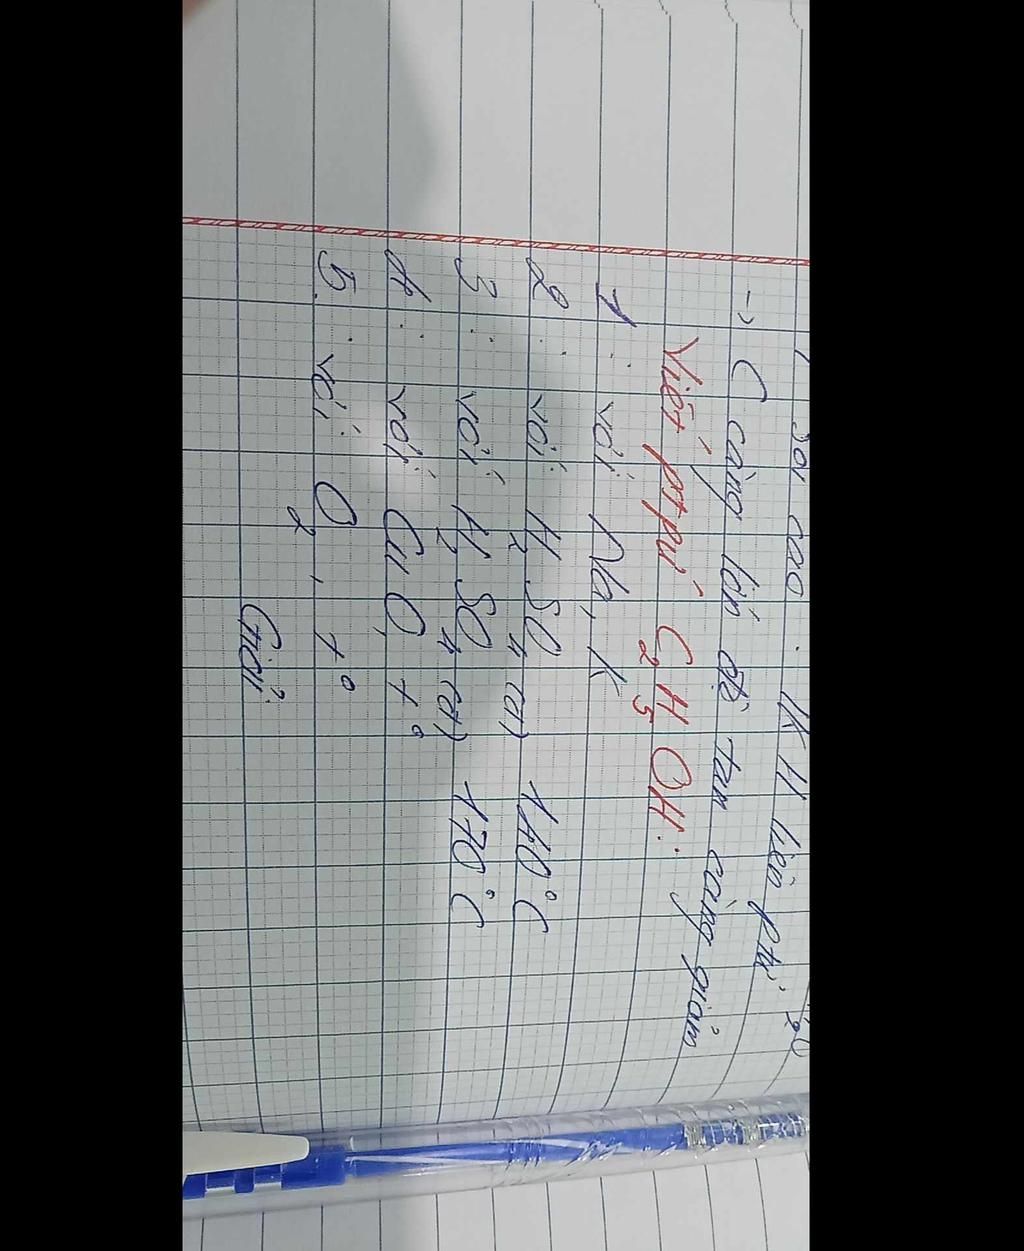 sôi cao. lk H liên ptử
→ C càng lớn độ tan càng giảm
Viết ptpứ C₂H₅OH:
1. với Na, K
2. với H₂SO₄ (đ) 140°C
3. với H₂SO₄ (đ) 170°C
4. với CuO, t°
5. với O₂, t°
Giải